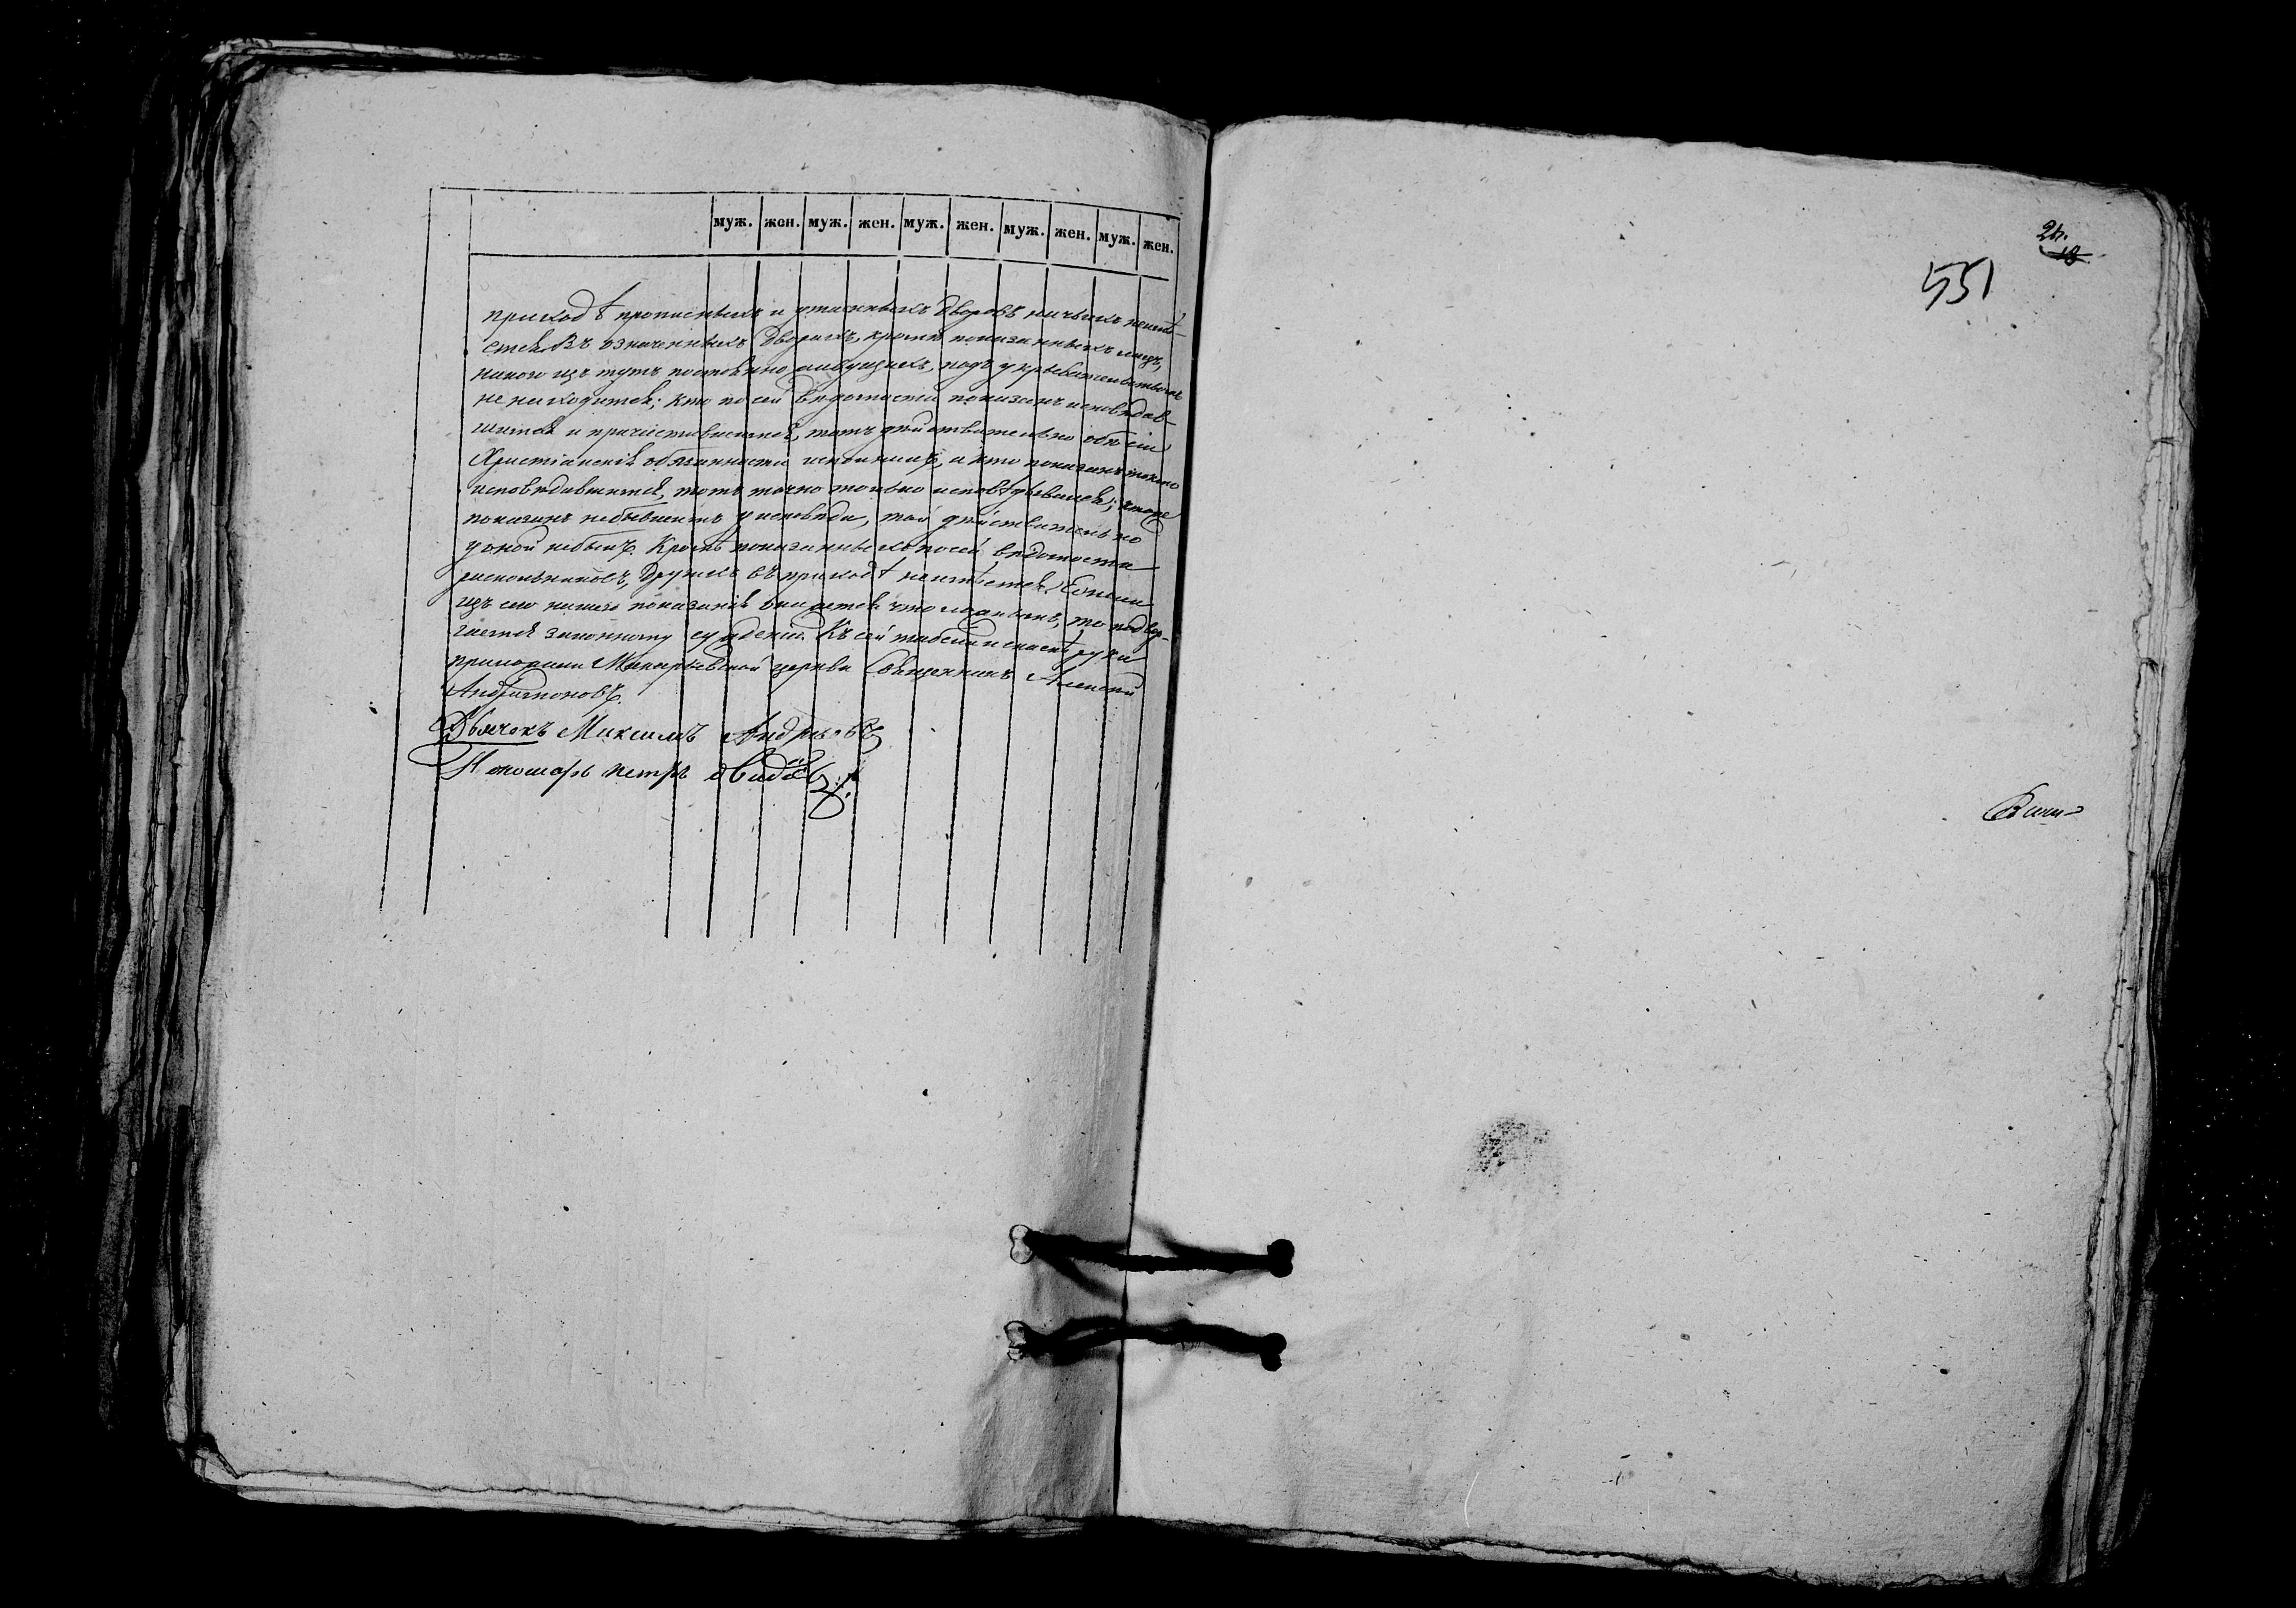 муж. жен. муж. жен. муж. жен. муж. жен. муж. жен.
приходѣ прописныхъ и утаенныхъ дворовъ ничьихъ неимѣ-
ется. Въ означенныхъ дворахъ, кромѣ показанныхъ лицъ,
никого изъ тутъ постоянно живущихъ, подъ укрывательствомъ
не находится; кто по сей вѣдомости показанъ исповѣдав-
шимся и причастившимся, тотъ дѣйствительно обѣ сіи
Христіанскія обязанности исполнилъ, и кто показанъ токмо
исповѣдавшимся, тотъ точно только исповѣдывался; кто же
показанъ небывшимъ у исповѣди, той дѣйствительно
у оной небылъ. Кромѣ показанныхъ по сей вѣдомости
раскольниковъ, другихъ въ приходѣ неимѣется. Если
изъ сего нашего показанія окажется что ложнымъ, то подвер-
гаемся законному сужденію. Къ сей
Макарьевской церкви Священникъ Алексѣй
Андрониковъ.
Дьячокъ Максимъ Андреевъ
Пономарь петръ
551